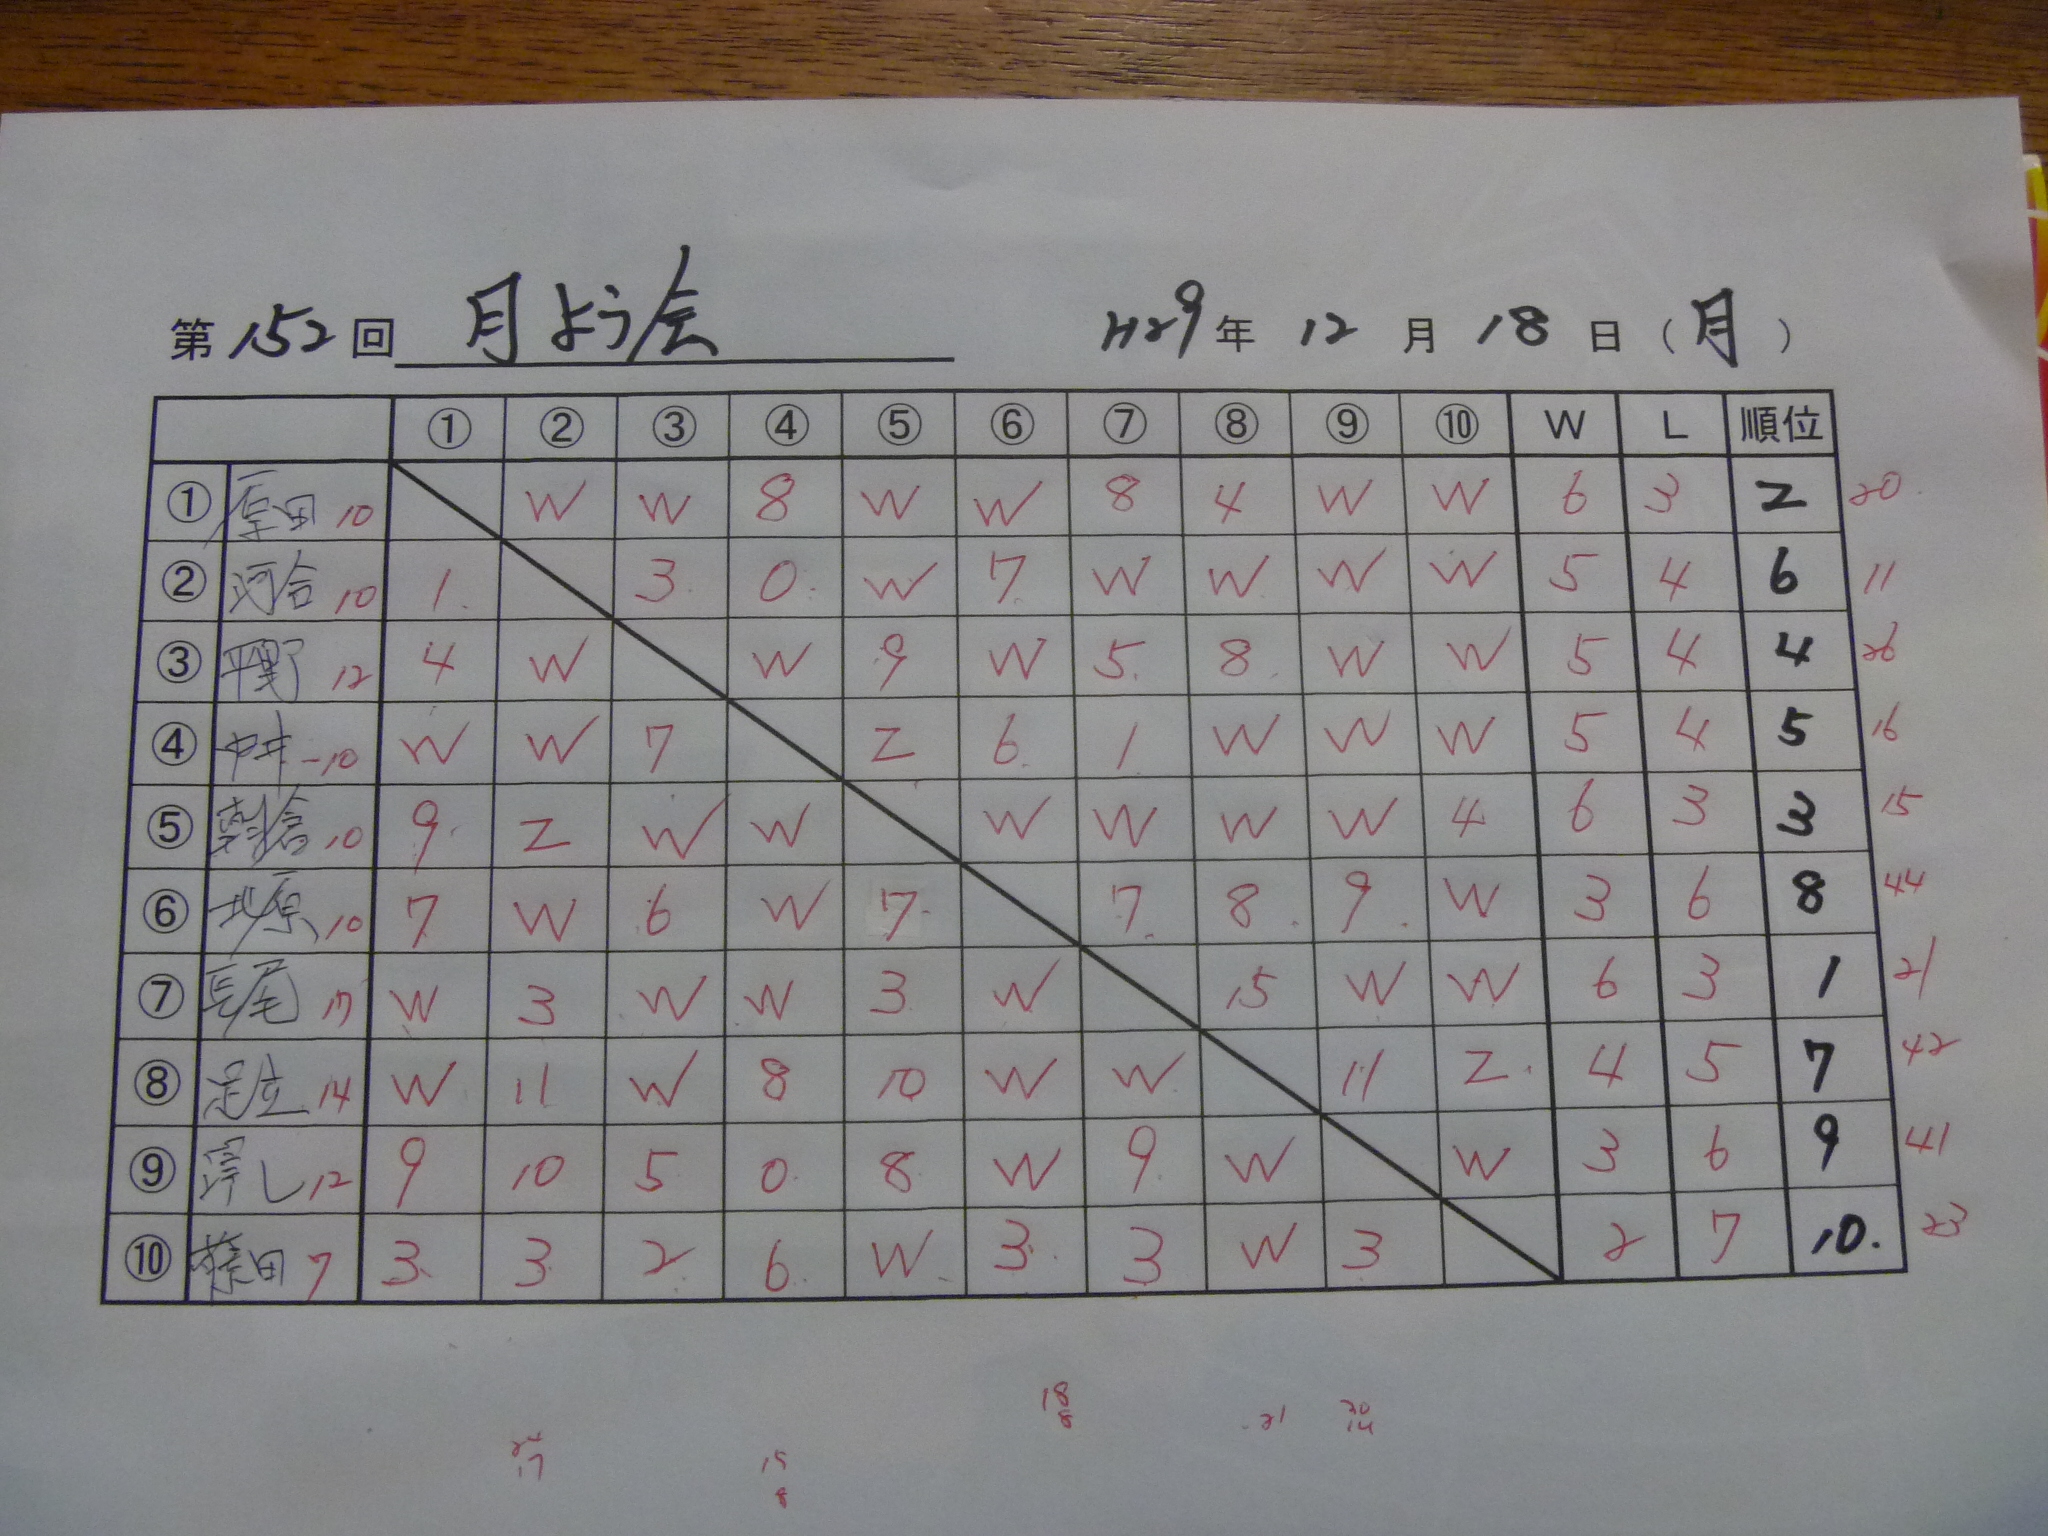 第152回 月よう会 H29年 12月 18日(月)
① ② ③ ④ ⑤ ⑥ ⑦ ⑧ ⑨ ⑩ W L 順位
① 原田 10 W W 8 W W 8 4 W W 6 3 2 20
② 河合 10 1 3 0 W 7 W W W W 5 4 6 11
③ 平野 12 4 W W 9 W 5 8 W W 5 4 4 26
④ 中井 -10 W W 7 2 6 1 W W W 5 4 5 16
⑤ 朝倉 10 9 2 W W W W W W 4 6 3 3 15
⑥ 北原 10 7 W 6 W 7 7 8 9 W 3 6 8 44
⑦ 長尾 W 3 W W 3 W 15 W W 6 3 1 21
⑧ 足立 14 W 11 W 8 10 W W 11 2 4 5 7 42
⑨ 12 9 10 5 0 8 W 9 W W 3 6 9 41
⑩ 7 3 3 2 6 W 3 3 W 3 2 7 10. 23
18
8
21
20
14
24
17
15
8